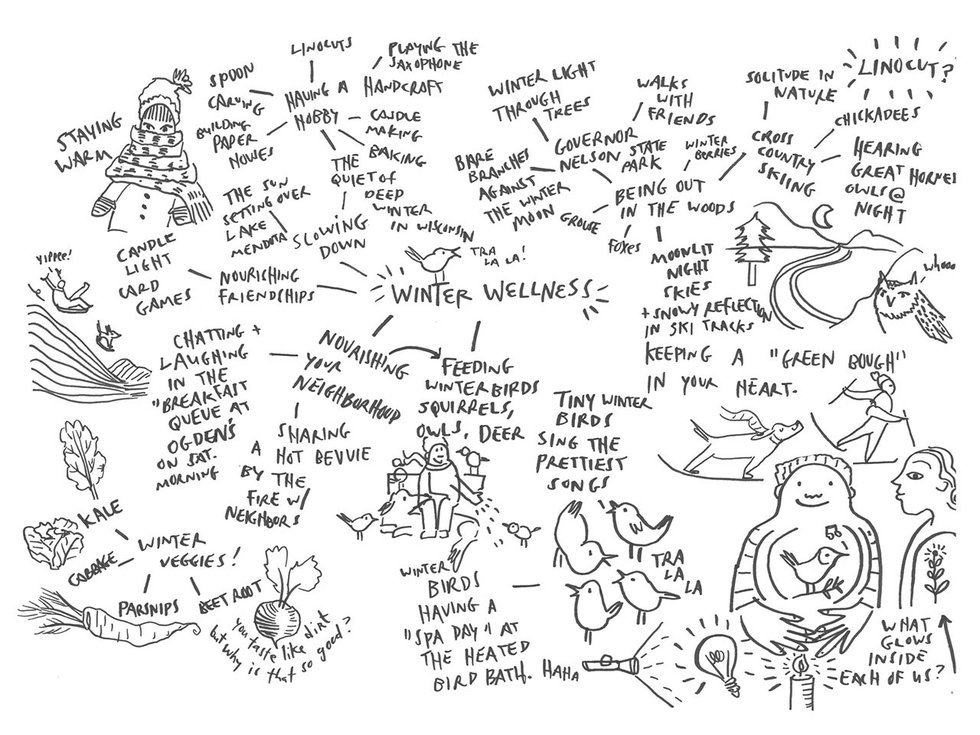 STAYING
WARM
SPOON
CARVING
BUILDING
PAPER
LINOCUTS
HAVING A
HOBBY
HANDCRAFT
PLAYING THE
SAXOPHONE
CANDLE
MAKING
BAKING
THE
QUIET OF
DEEP
WINTER
IN WISCONSIN
THE SUN
SETTING OVER
LAKE
MENDOTA
SLOWING
DOWN
CANDLE
LIGHT
CARD
GAMES
NOURISHING
FRIENDSHIPS
TRA
LA LA!
WINTER WELLNESS
WINTER LIGHT
THROUGH
TREES
BARE
BRANCHES
AGAINST
THE WINTER
MOON
GOVERNOR
NELSON STATE
PARK
WALKS
WITH
FRIENDS
WINTER
BERRIES
GROUSE
FOXES
BEING OUT
IN THE WOODS
CROSS
COUNTRY
SKIING
SOLITUDE IN
NATURE
LINOCUT?
CHICKADEES
HEARING
GREAT HORNED
OWLS @
NIGHT
MOONLIT
NIGHT
SKIES
+ SNOWY REFLECTION
IN SKI TRACKS
whooo
KEEPING A "GREEN BOUGH"
IN YOUR HEART.
YIPPEE!
CHATTING +
LAUGHING
IN THE
"BREAKFAST
QUEUE AT
OGDEN'S
ON SAT.
MORNING
NOURISHING
YOUR
NEIGHBORHOOD
FEEDING
WINTER BIRDS
SQUIRRELS,
OWLS, DEER
SHARING
A HOT BEVVIE
BY THE
FIRE W/
NEIGHBORS
TINY WINTER
BIRDS
SING THE
PRETTIEST
SONGS
TRA
LA
LA
KALE
CABBAGE
WINTER
VEGGIES!
PARSNIPS
BEET ROOT
You taste like dirt
but why is that so good?
WINTER
BIRDS
HAVING A
"SPA DAY" AT
THE HEATED
BIRD BATH. HAHA
WHAT
GLOWS
INSIDE
EACH OF US?